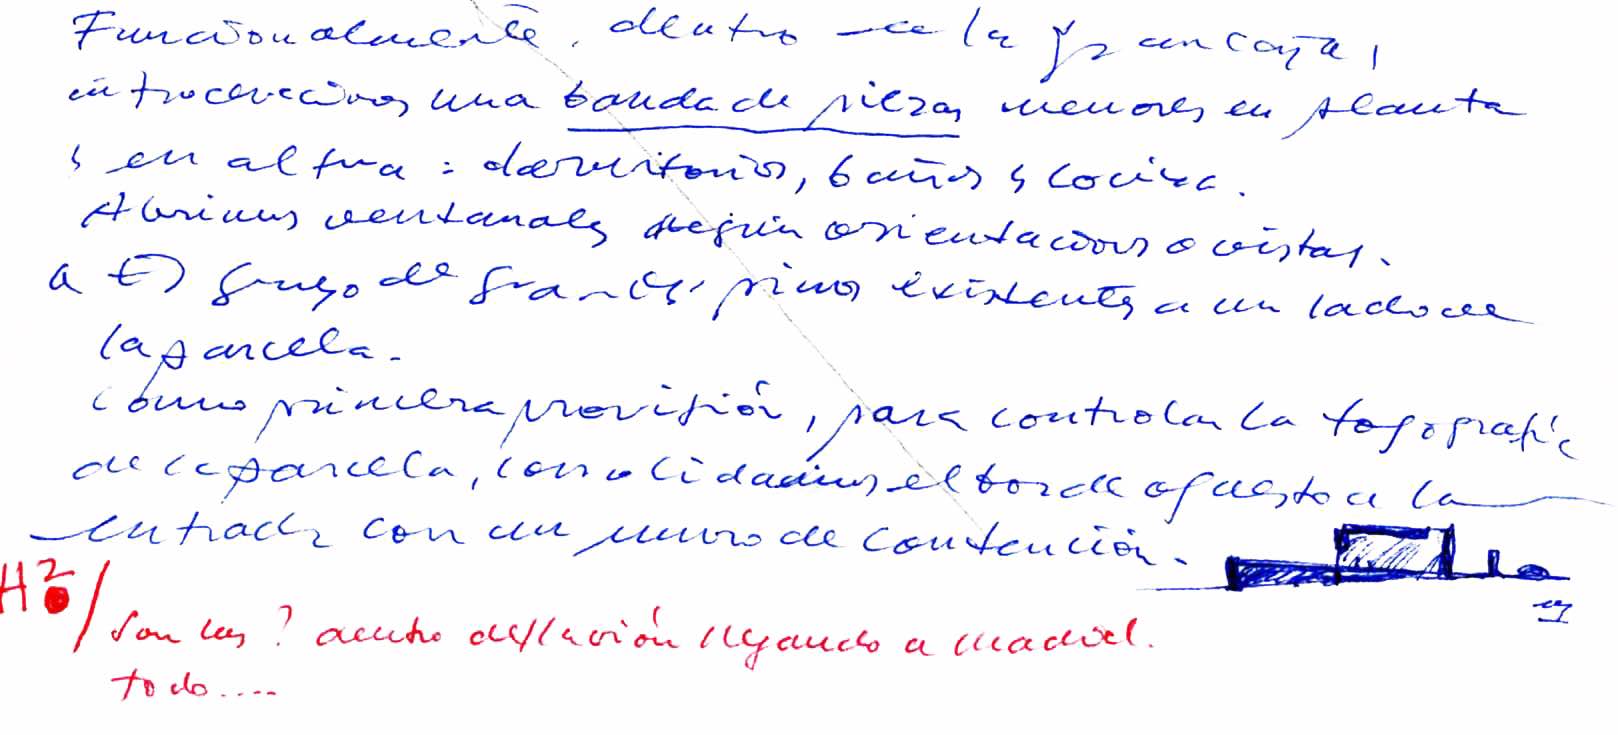 Funcionalmente, dentro de la gran caja,
introducimos una banda de piezas menores en planta
y en altura: dormitorios, baños y cocina.
Abrimos ventanales según orientaciones o vistas.
a El grupo de grandes pinos existentes a un lado de
la parcela.
Como primera provisión, para controlar la topografía
de la parcela, consolidamos el borde opuesto a la
entrada con un muro de contención.
H2
Son las ? dentro del avión llegando a Madrid.
todo....